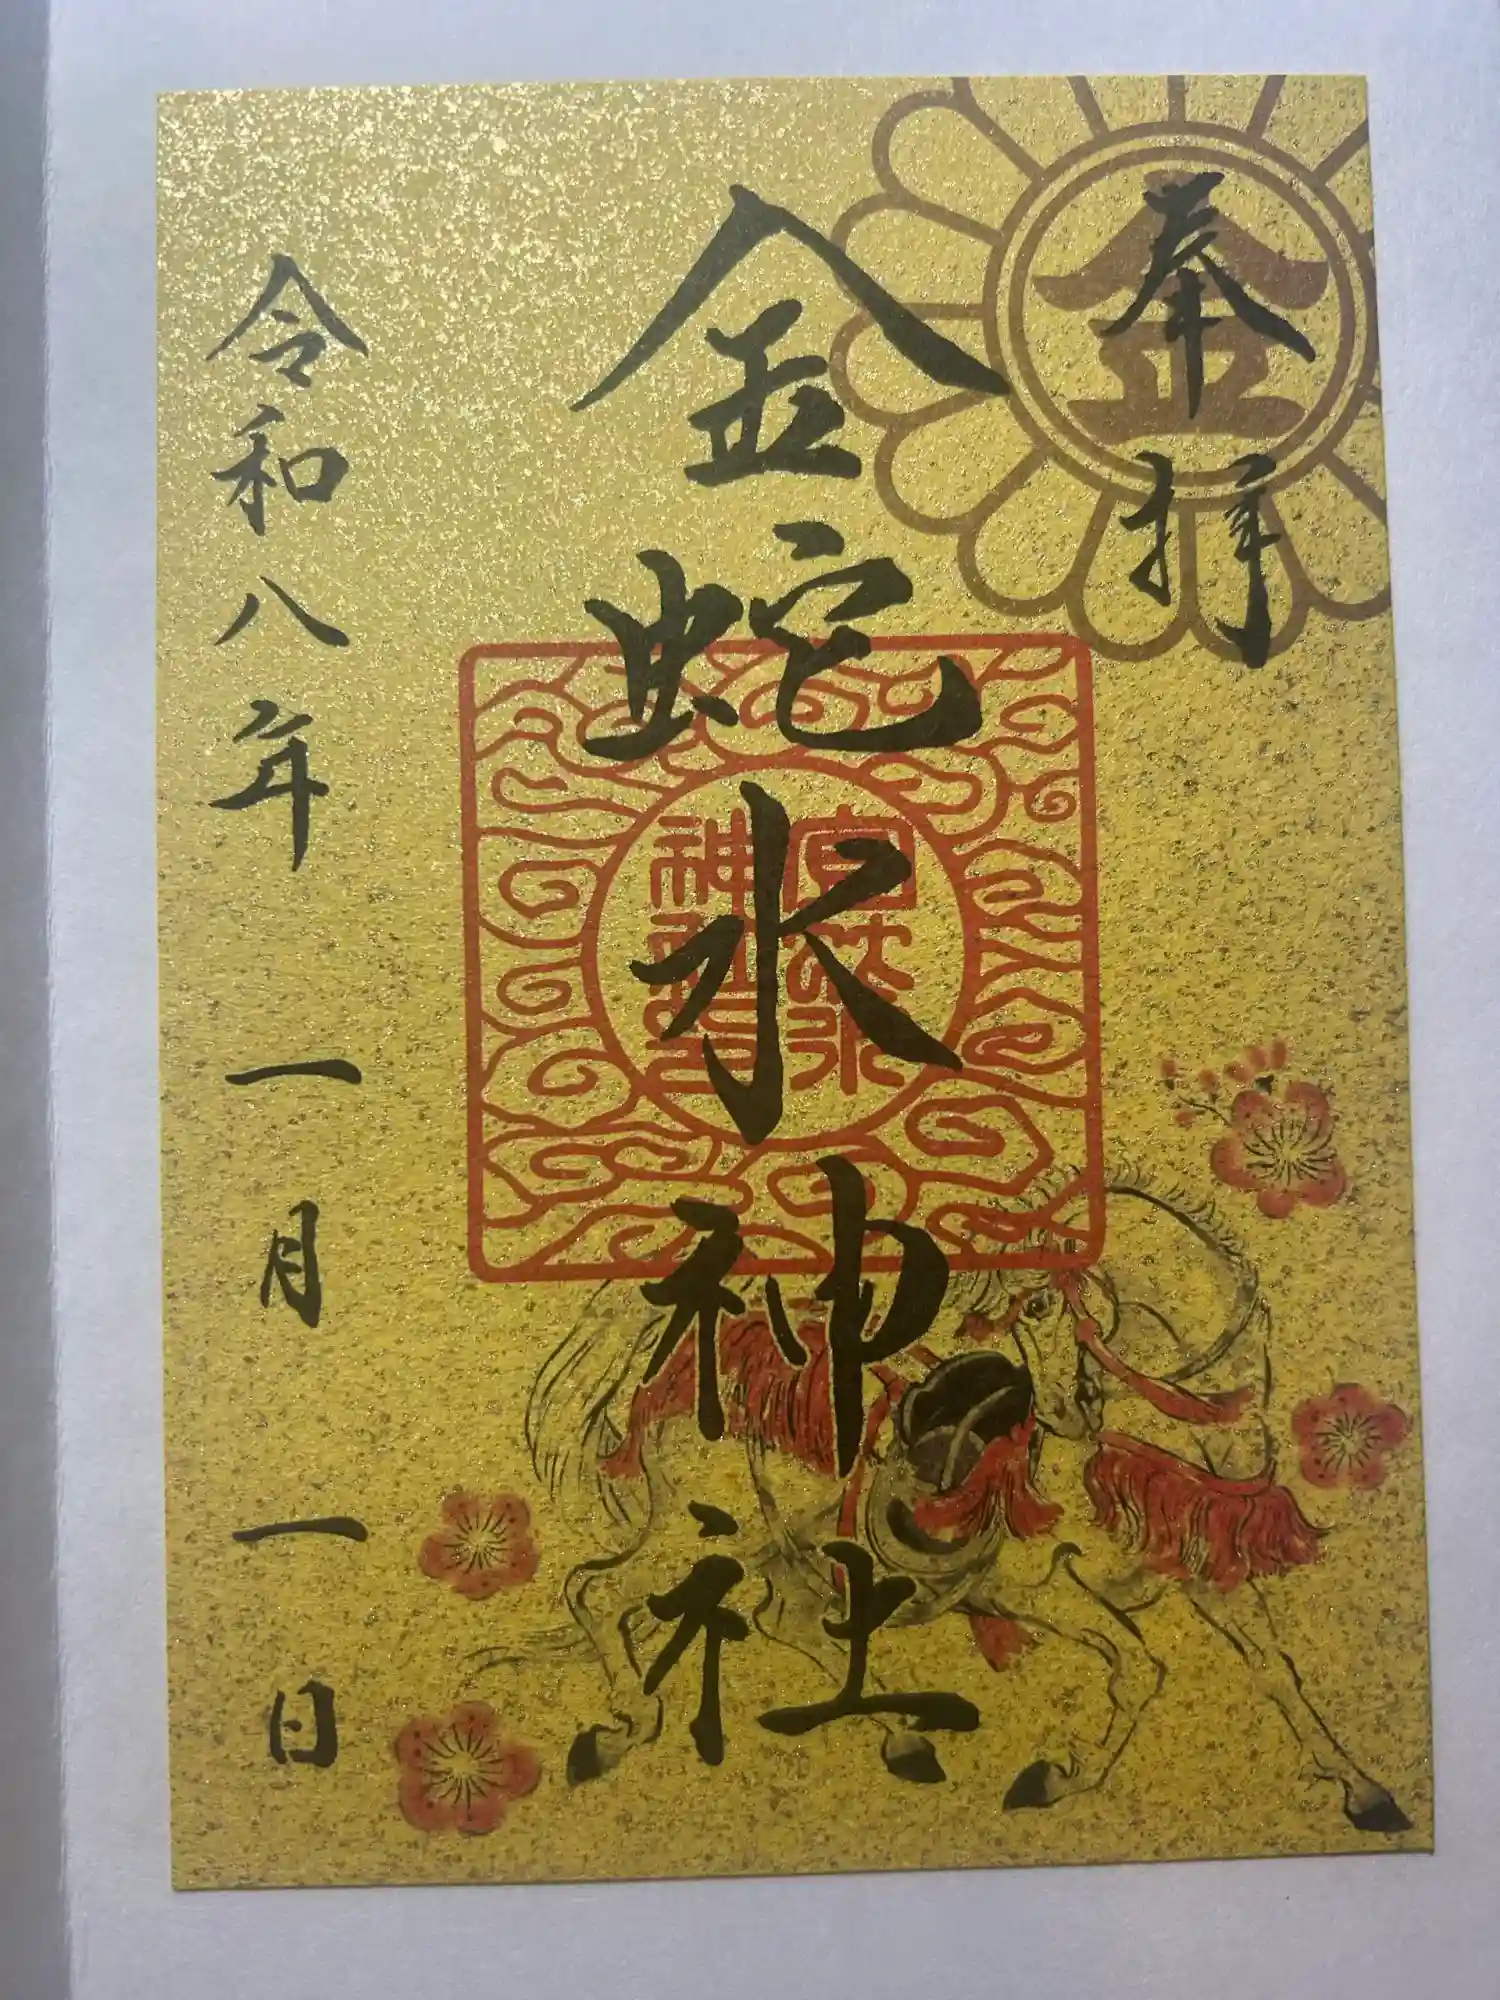 奉拝
金
金蛇水神社
令和八年一月一日